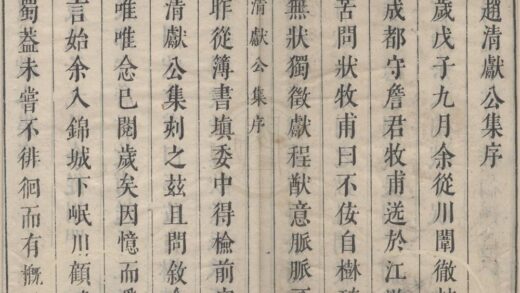 趙清獻公集序
歲戊子九月余從川闈徹
成都守詹君牧甫送於江
苦問狀牧甫曰不佞自樹
無狀獨徵獻程猷意脈脈
清獻公集序
昨從簿書填委中得檢前
清獻公集刻之茲且問敘
唯唯念已閱歲矣因憶而
言始余入錦城下岷川顧
蜀蓋未嘗不徘徊而有慨